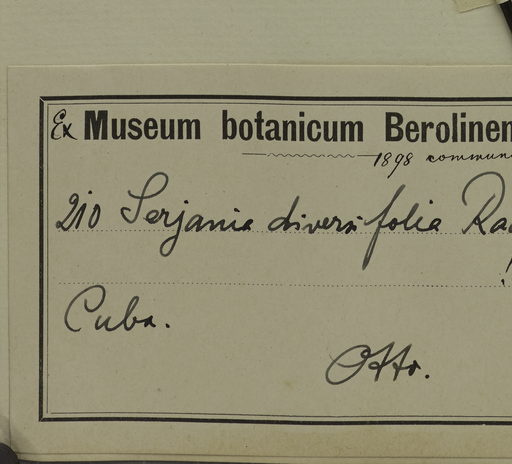 Ex Museum botanicum Berolinen
1898 commun
210 Serjania diversifolia Ra
Cuba.
Otto.